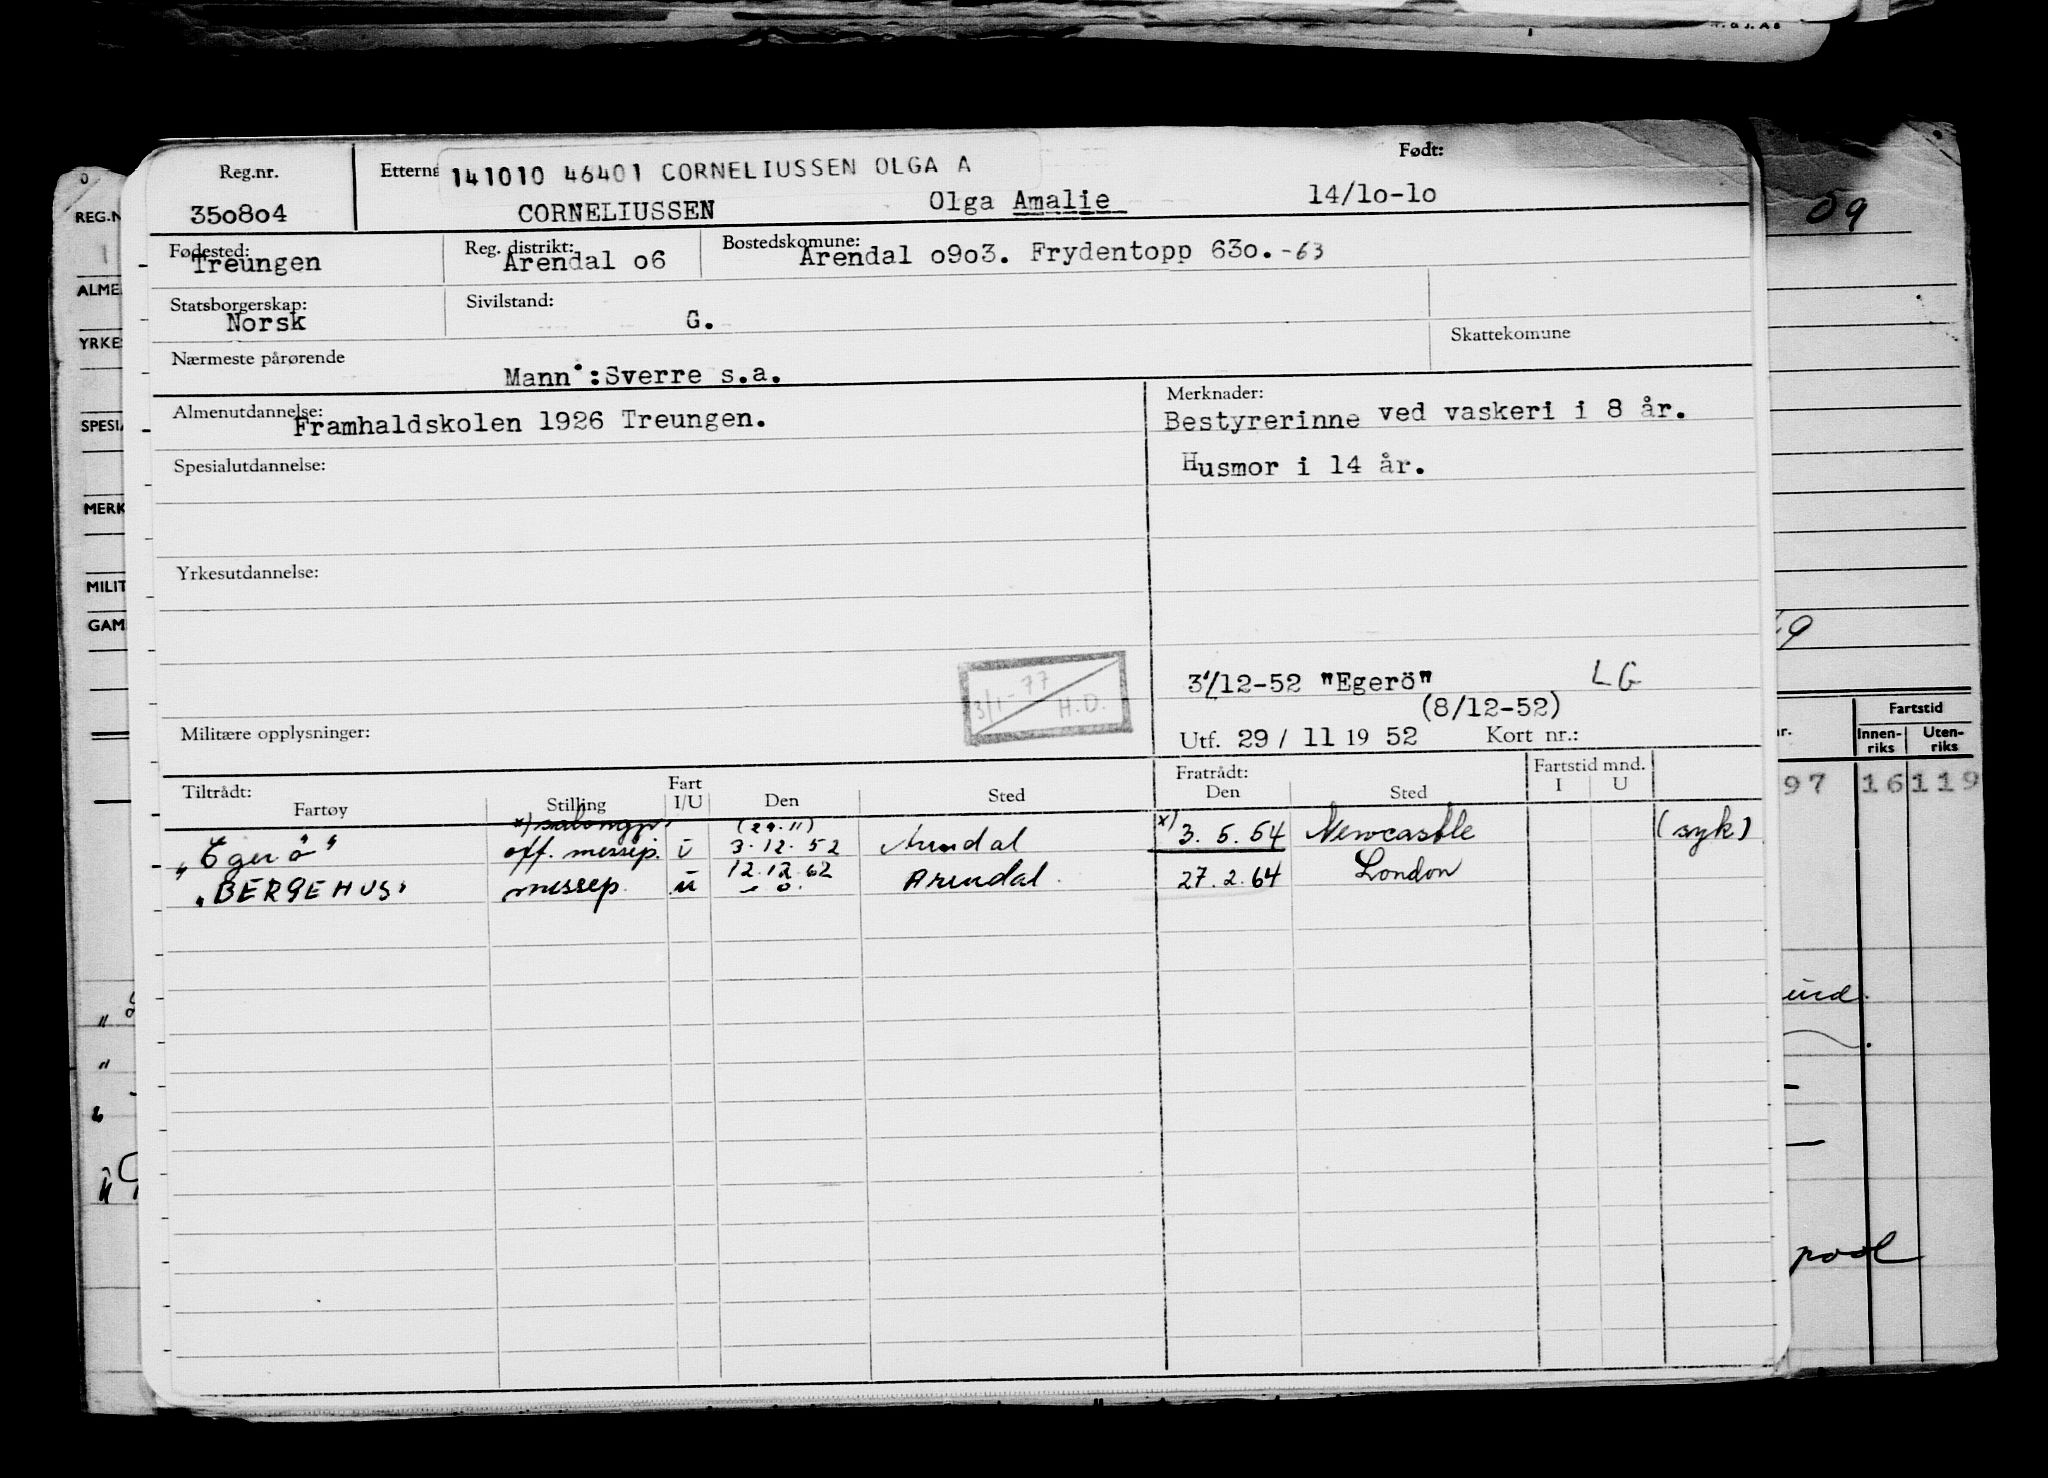 Reg.nr.
350804
141010 46401 CORNELIUSSEN OLGA A
Født:
CORNELIUSSEN Olga Amalie 14/1o-1o
Fødested: Treungen
Reg. distrikt: Arendal o6
Bostedskomune: Arendal o9o3. Frydentopp 63o. -63
Statsborgerskap: Norsk
Sivilstand: G.
Skattekomune
Nærmeste pårørende
Mann :Sverre s.a.
Almenutdannelse: Framhaldskolen 1926 Treungen.
Merknader:
Bestyrerinne ved vaskeri i 8 år.
Husmor i 14 år.
Spesialutdannelse:
Yrkesutdannelse:
3/1-77 H.D.
3/12-52 "Egerö" LG
(8/12-52)
Militære opplysninger:
Utf. 29 / 11 19 52 Kort nr.:
Tiltrådt:
Fartøy Stilling Fart I/U Den Sted
Fratrådt:
Den Sted
Fartstid mnd.
I U
x) salongp. (29.11)
"Egerö" off. messep. U 3.12.52 Arendal x) 3.5.54 Newcastle (syk)
12.12.62
"BERGEHUS" messep. u Arendal 27.2.64 London
REG.N
ALME
YRKE
SPESI
MERK
MILIT
GAM
09
Fartstid
Innen-riks Uten-riks
97 16 119
pool